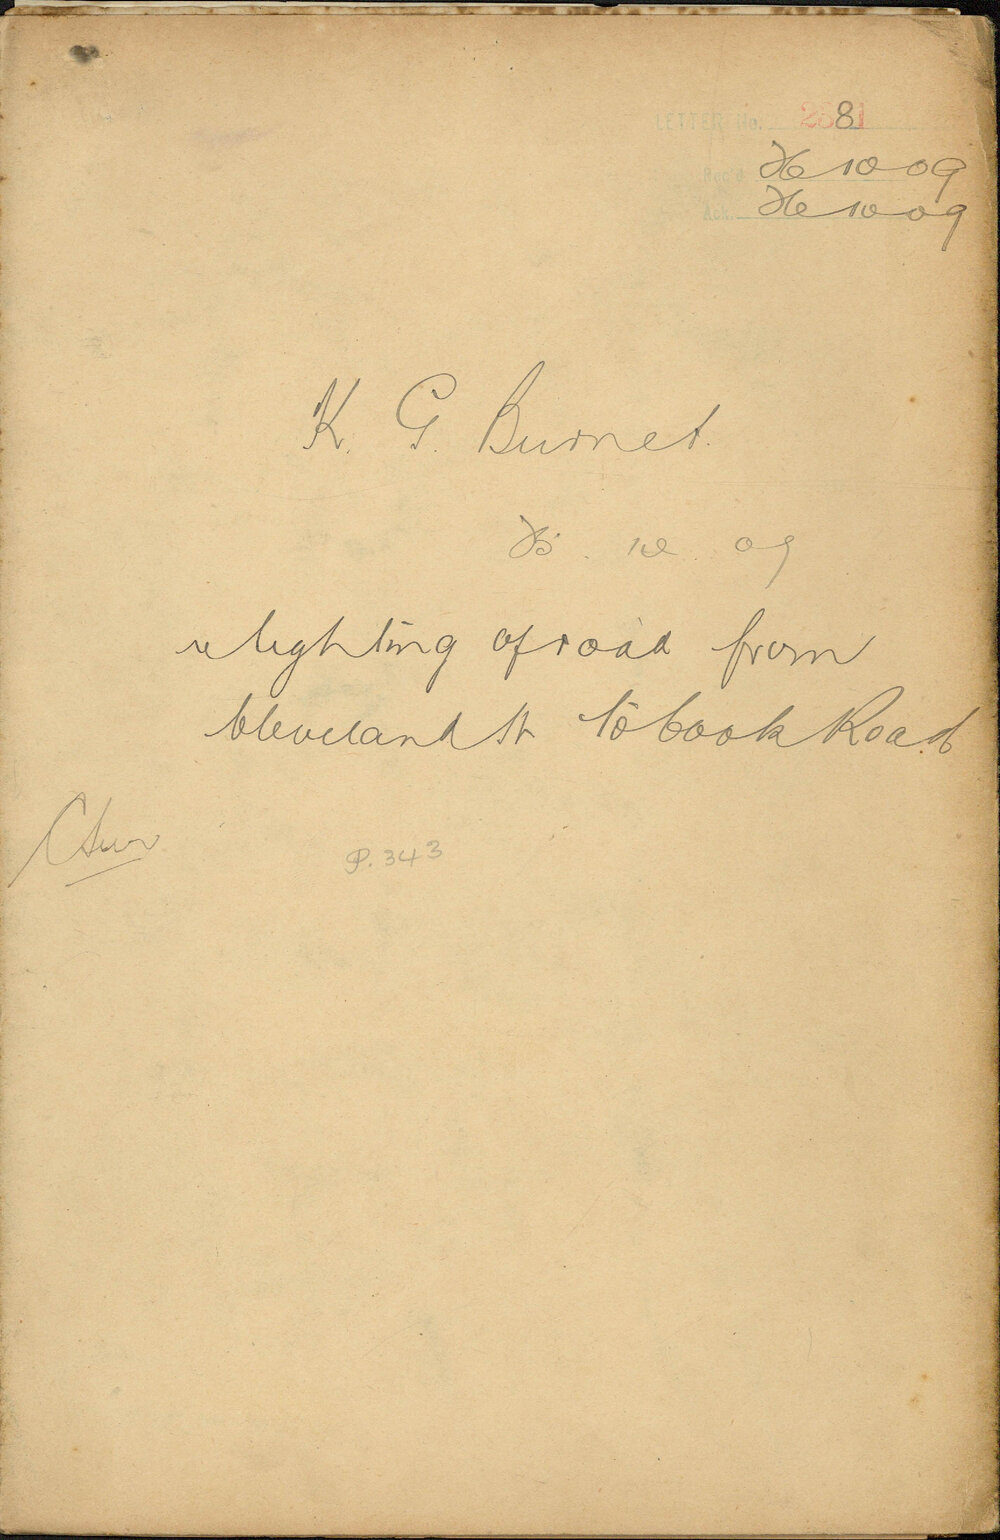 LETTER No. 2881
Rec'd 26 10 09
Ack. 26 10 09
K. G. Burnet.
25 . 10 . 09
re lighting of road from
Cleveland St to Cook Road
P. 343